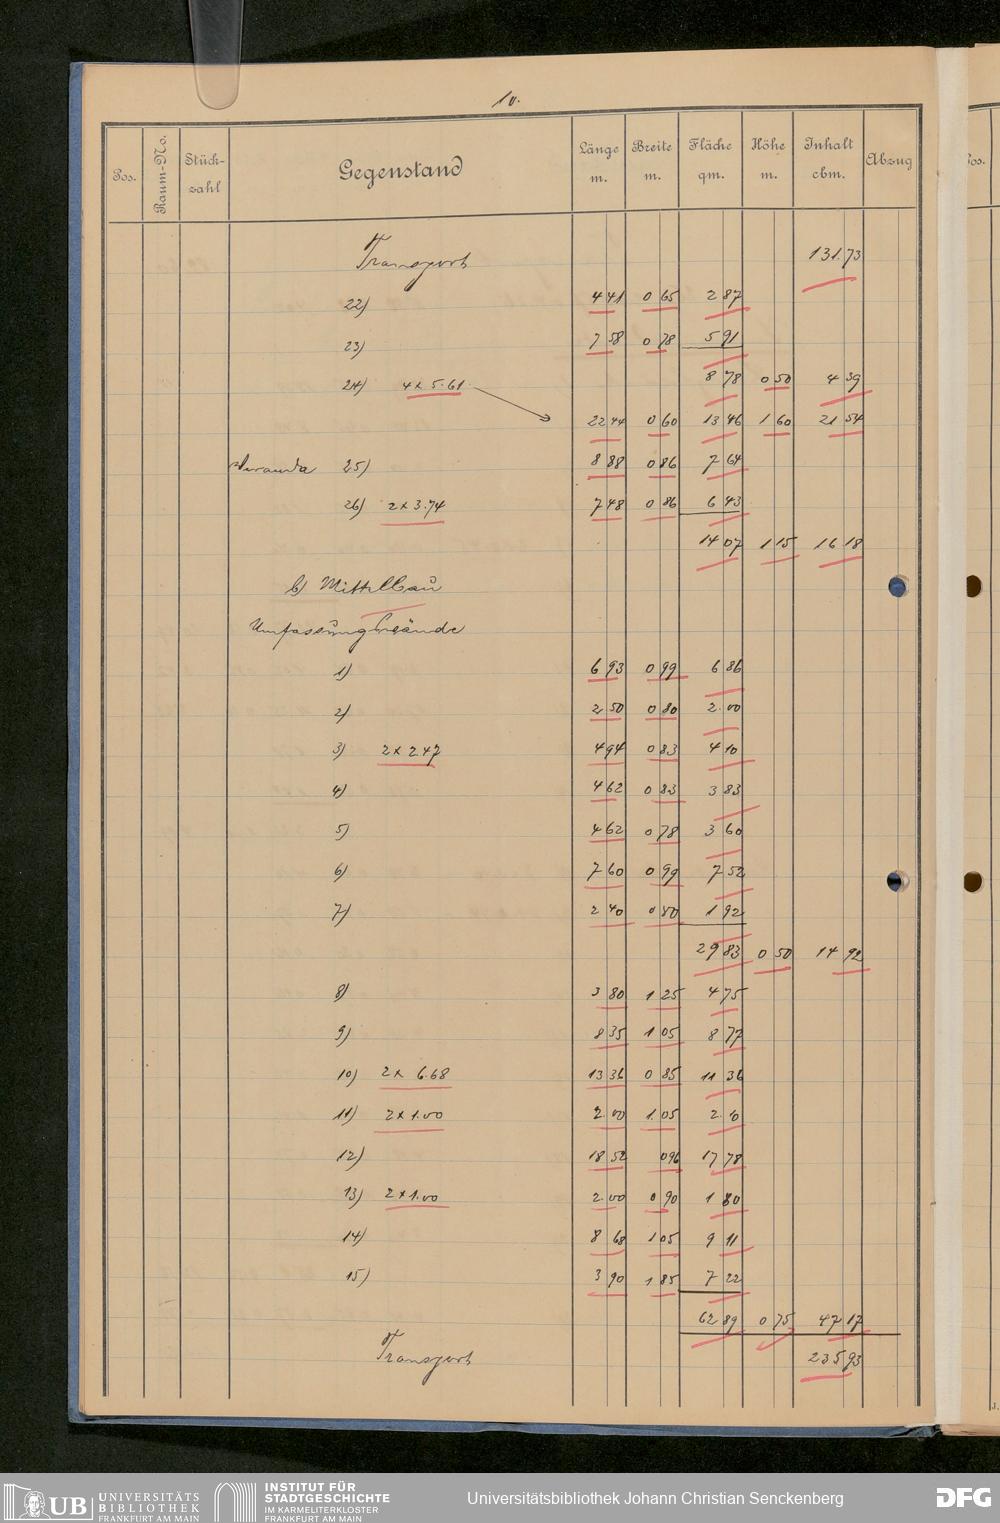 10.
Pos. Raum-No. Stück-zahl Gegenstand Länge m. Breite m. Fläche qm. Höhe m. Inhalt cbm. Abzug
Pos.
Transport 131.73
22) 4 41 0 65 2 87
23) 7 58 0 78 5 91
8 78 0 50 4 39
24) 4 x 5.61
22 44 0 60 13 46 1 60 21 54
Veranda 25) 8 88 0 86 7 64
26) 2 x 3.74 7 48 0 86 6 43
14 07 1 15 16 18
b) Mittelbau
Umfassungswände
1) 6 93 0 99 6 86
2) 2 50 0 80 2.00
3) 2 x 2.47 4 94 0 83 4 10
4) 4 62 0 83 3 83
5) 4 62 0 78 3 60
6) 7 60 0 99 7 52
7) 2 40 0 80 1 92
29 83 0 50 14 92
8) 3 80 1 25 4 75
9) 8 35 1 05 8 77
10) 2 x 6.68 13 36 0 85 11 36
11) 2 x 1.00 2.00 1.05 2.10
12) 18 52 0 96 17 78
13) 2 x 1.00 2.00 0 90 1 80
14) 8 68 1 05 9 11
15) 3 90 1 85 7 22
62 89 0 75 47 17
Transport 235 93
UB UNIVERSITÄTS BIBLIOTHEK FRANKFURT AM MAIN
INSTITUT FÜR STADTGESCHICHTE IM KARMELITERKLOSTER FRANKFURT AM MAIN
Universitätsbibliothek Johann Christian Senckenberg
DFG